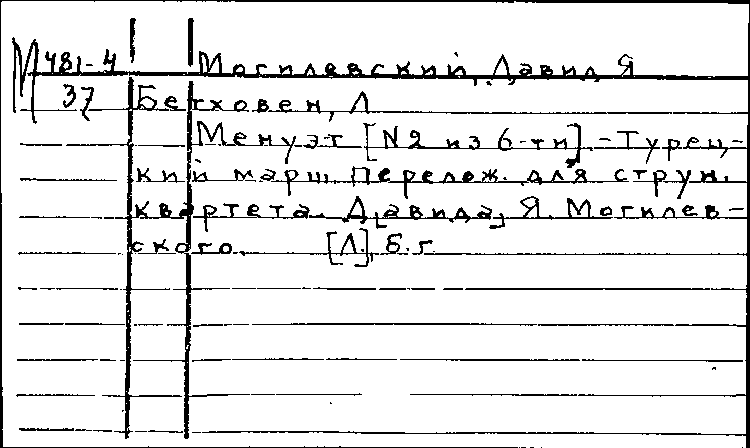 М 481-4 Могилевский, Давид Я
37 Бетховен, Л
Менуэт [N2 из 6-ти]. - Турец-
кий марш. Перелож. для струн.
квартета. Д[авида] Я. Могилев-
ского. [Л], б. г.